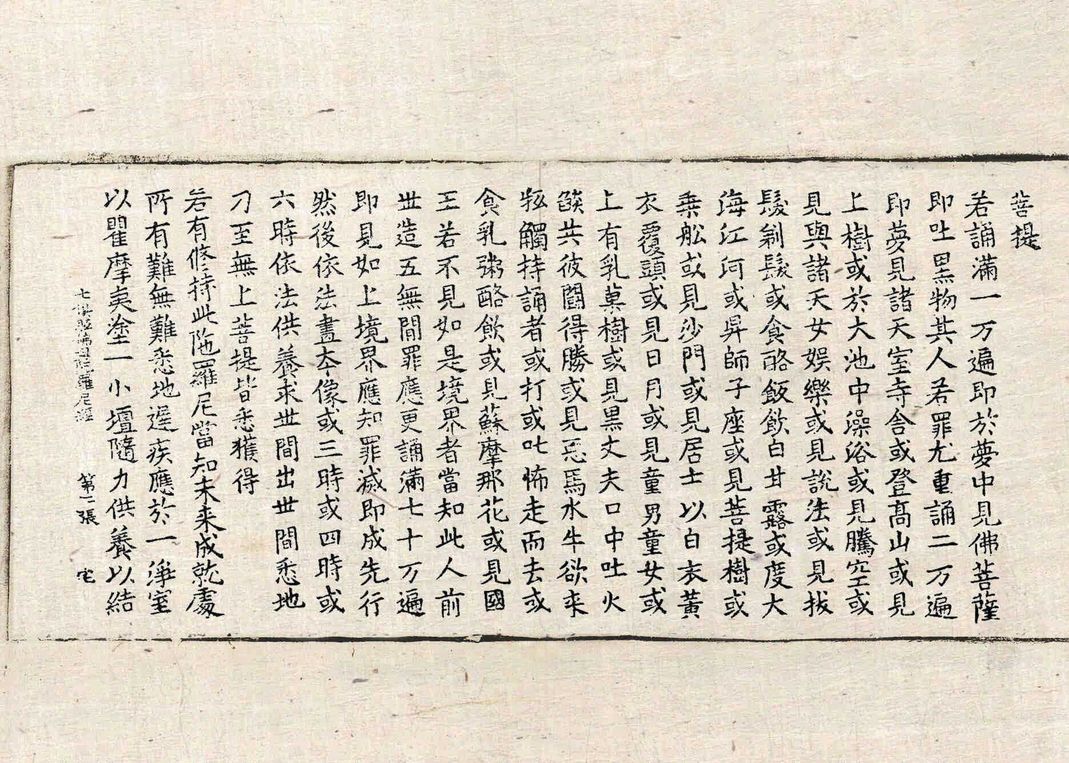 菩提
若誦滿一万遍即於夢中見佛菩薩
即吐黒物其人若罪尤重誦二万遍
即夢見諸天室寺舍或登髙山或見
上樹或於大池中澡浴或見騰空或
見與諸天女娛樂或見說法或見拔
髮剃髮或食酪飯飲白甘露或度大
海江河或昇師子座或見菩提樹或
乗舩或見沙門或見居士以白衣黃
衣覆頭或見日月或見童男童女或
上有乳菓樹或見黒丈夫口中吐火
燄共彼鬪得勝或見惡馬水牛欲来
牴觸持誦者或打或叱怖走而去或
食乳粥酪飲或見蘇摩那花或見國
王若不見如是境界者當知此人前
世造五無間罪應更誦滿七十万遍
即見如上境界應知罪滅即成先行
然後依法畫本像或三時或四時或
六時依法供養求世間出世間悉地
乃至無上菩提皆悉獲得
若有修持此陁羅尼當知未来成就處
所有難無難悉地遲疾應於一淨室
以瞿摩夷塗一小壇隨力供養以結
七俱胝陁羅尼經 第二張 宅